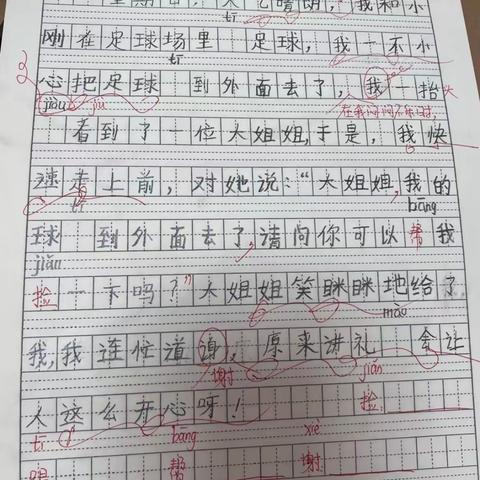 星期日,天气晴朗,我和小
tī
刚在足球场里 足球,我一不小
tī
心把足球 到外面去了,我一抬
jiǎo jiù
看到了一位大姐姐,于是,我快
速走上前,对她说:“大姐姐,我的
tī bāng
球 到外面去了,请问你可以帮我
jiǎn
捡一下吗?”大姐姐笑眯眯地给了
mào
我,我连忙道谢,原来讲礼 会让
谢 jiǎn
人这么开心呀! 捡
tī bāng xiè
踢 帮 谢